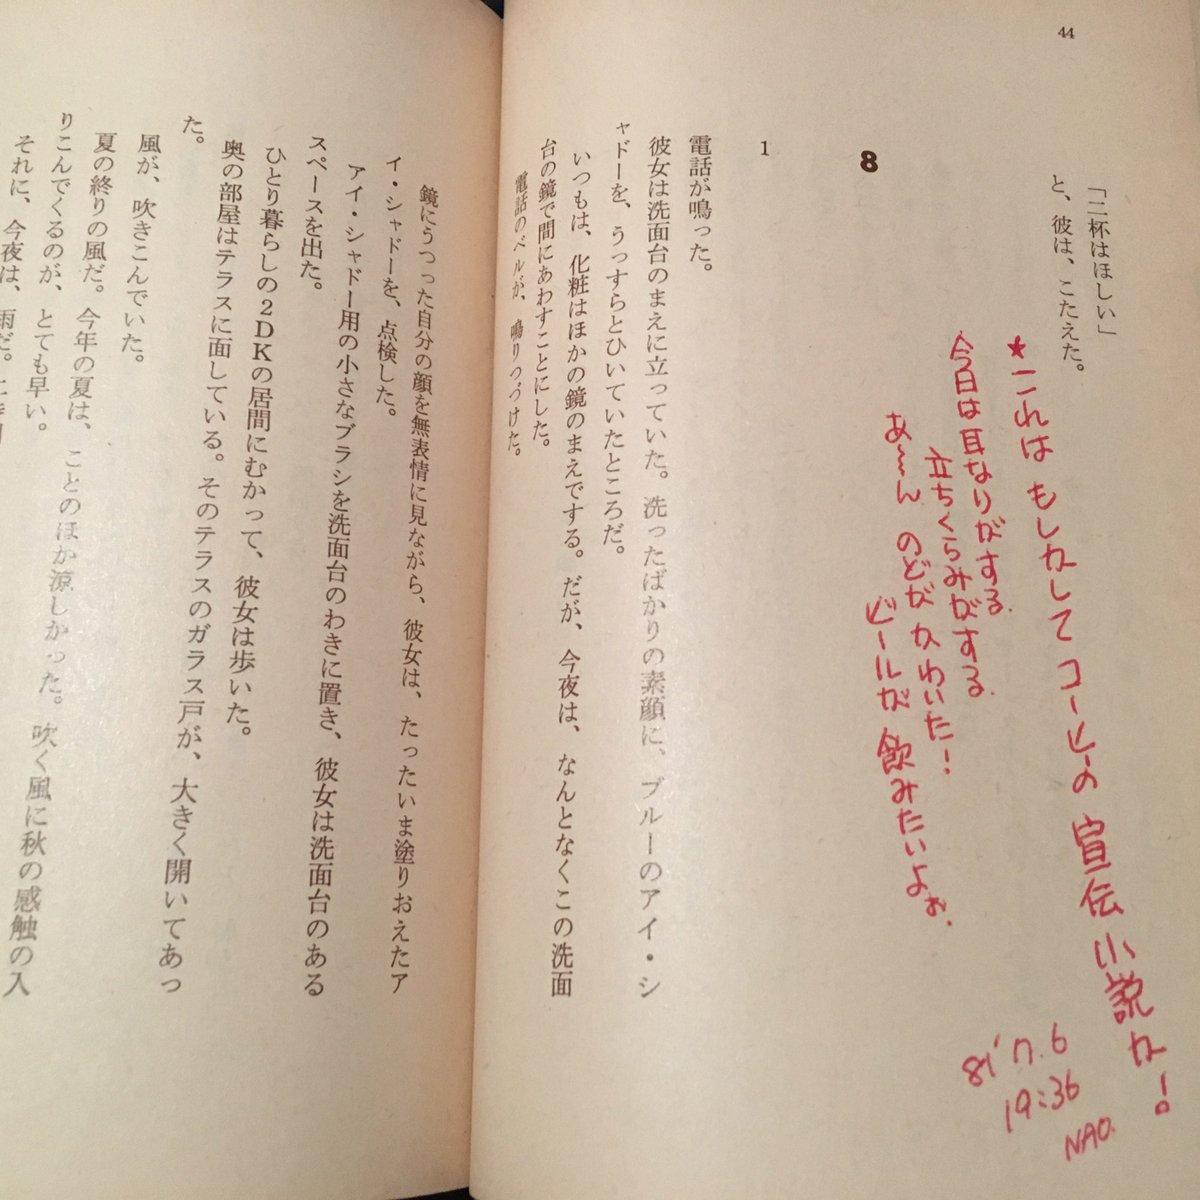 44
「二杯はほしい」
と、彼は、こたえた。
★これはもしかしてコーヒーの宣伝小説か!。
今日は耳なりがする。
立ちくらみがする
あ〜〜ん のどがかわいた!
ビールが飲みたいよぉ。
81' 7.6
19:36
NAO.
8
1
電話が鳴った。
彼女は洗面台のまえに立っていた。洗ったばかりの素顔に、ブルーのアイ・シ
ャドーを、うっすらとひいていたところだ。
いつもは、化粧はほかの鏡のまえでする。だが、今夜は、なんとなくこの洗面
台の鏡で間にあわすことにした。
電話のベルが、鳴りつづけた。
鏡にうつった自分の顔を無表情に見ながら、彼女は、たったいま塗りおえたア
イ・シャドーを、点検した。
アイ・シャドー用の小さなブラシを洗面台のわきに置き、彼女は洗面台のある
スペースを出た。
ひとり暮らしの2DKの居間にむかって、彼女は歩いた。
奥の部屋はテラスに面している。そのテラスのガラス戸が、大きく開いてあっ
た。
風が、吹きこんでいた。
夏の終りの風だ。今年の夏は、ことのほか涼しかった。吹く風に秋の感触の入
りこんでくるのが、とても早い。
それに、今夜は、雨だ。